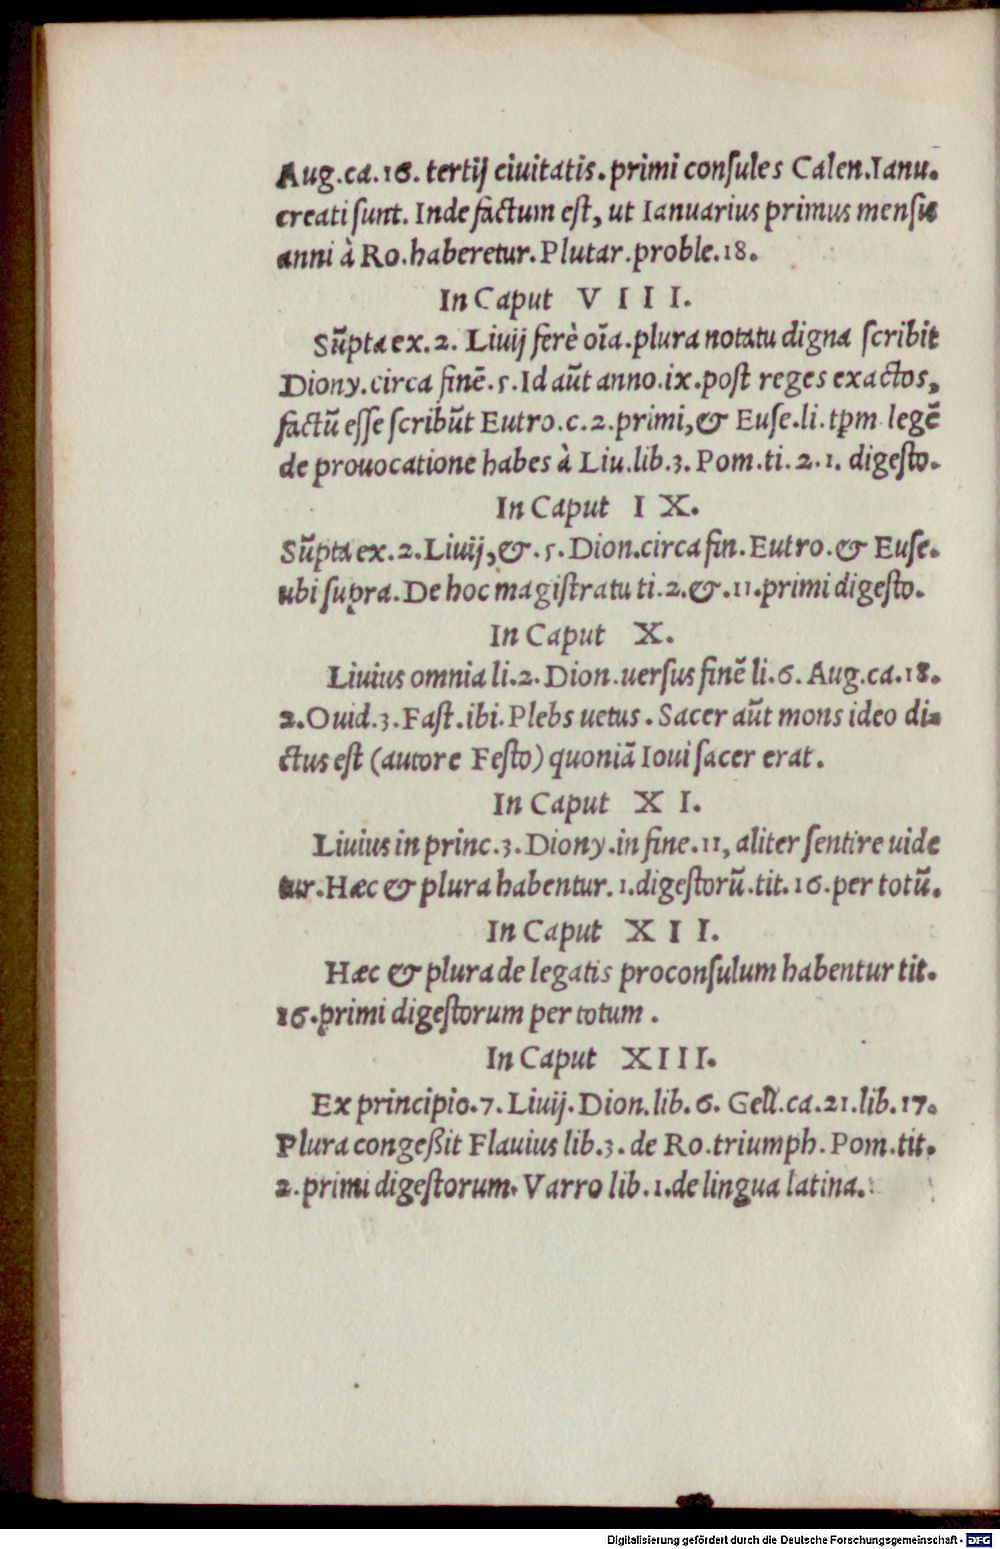 Aug.ca.16. tertij ciuitatis.primi conſules Calen.Ianu.
creati ſunt. Inde factum eſt, ut Ianuarius primus menſis
anni à Ro.haberetur.Plutar.proble.18.
In Caput VIII.
Sũpta ex.2. Liuij ferè oĩa.plura notatu digna ſcribit
Diony.circa finẽ.5.Id aũt anno.ix.poſt reges exactos,
factũ eſſe ſcribũt Eutro.c.2.primi,& Euſe.li.tꝑm legẽ
de prouocatione habes à Liu.lib.3.Pom.ti.2.1. digeſto.
In Caput IX.
Sũpta ex.2.Liuij,&.5.Dion.circa fin.Eutro.& Euſe.
ubi ſupra.De hoc magiſtratu ti.2.&.11.primi digeſto.
In Caput X.
Liuius omnia li.2.Dion.uerſus finẽ li.6. Aug.ca.18.
2.Ouid.3.Faſt.ibi.Plebs uetus.Sacer aũt mons ideo di-
ctus eſt (autore Feſto) quoniã Ioui ſacer erat.
In Caput XI.
Liuius in princ.3.Diony.in fine.11, aliter ſentire uide
tur.Hæc & plura habentur.1.digeſtorũ.tit.16.per totũ.
In Caput XII.
Hæc & plura de legatis proconſulum habentur tit.
16.primi digeſtorum per totum.
In Caput XIII.
Ex principio.7.Liuij.Dion.lib.6. Gell.ca.21.lib.17.
Plura congeßit Flauius lib.3.de Ro.triumph.Pom.tit.
2.primi digeſtorum.Varro lib.1.de lingua latina.
Digitalisierung gefördert durch die Deutsche Forschungsgemeinschaft - DFG